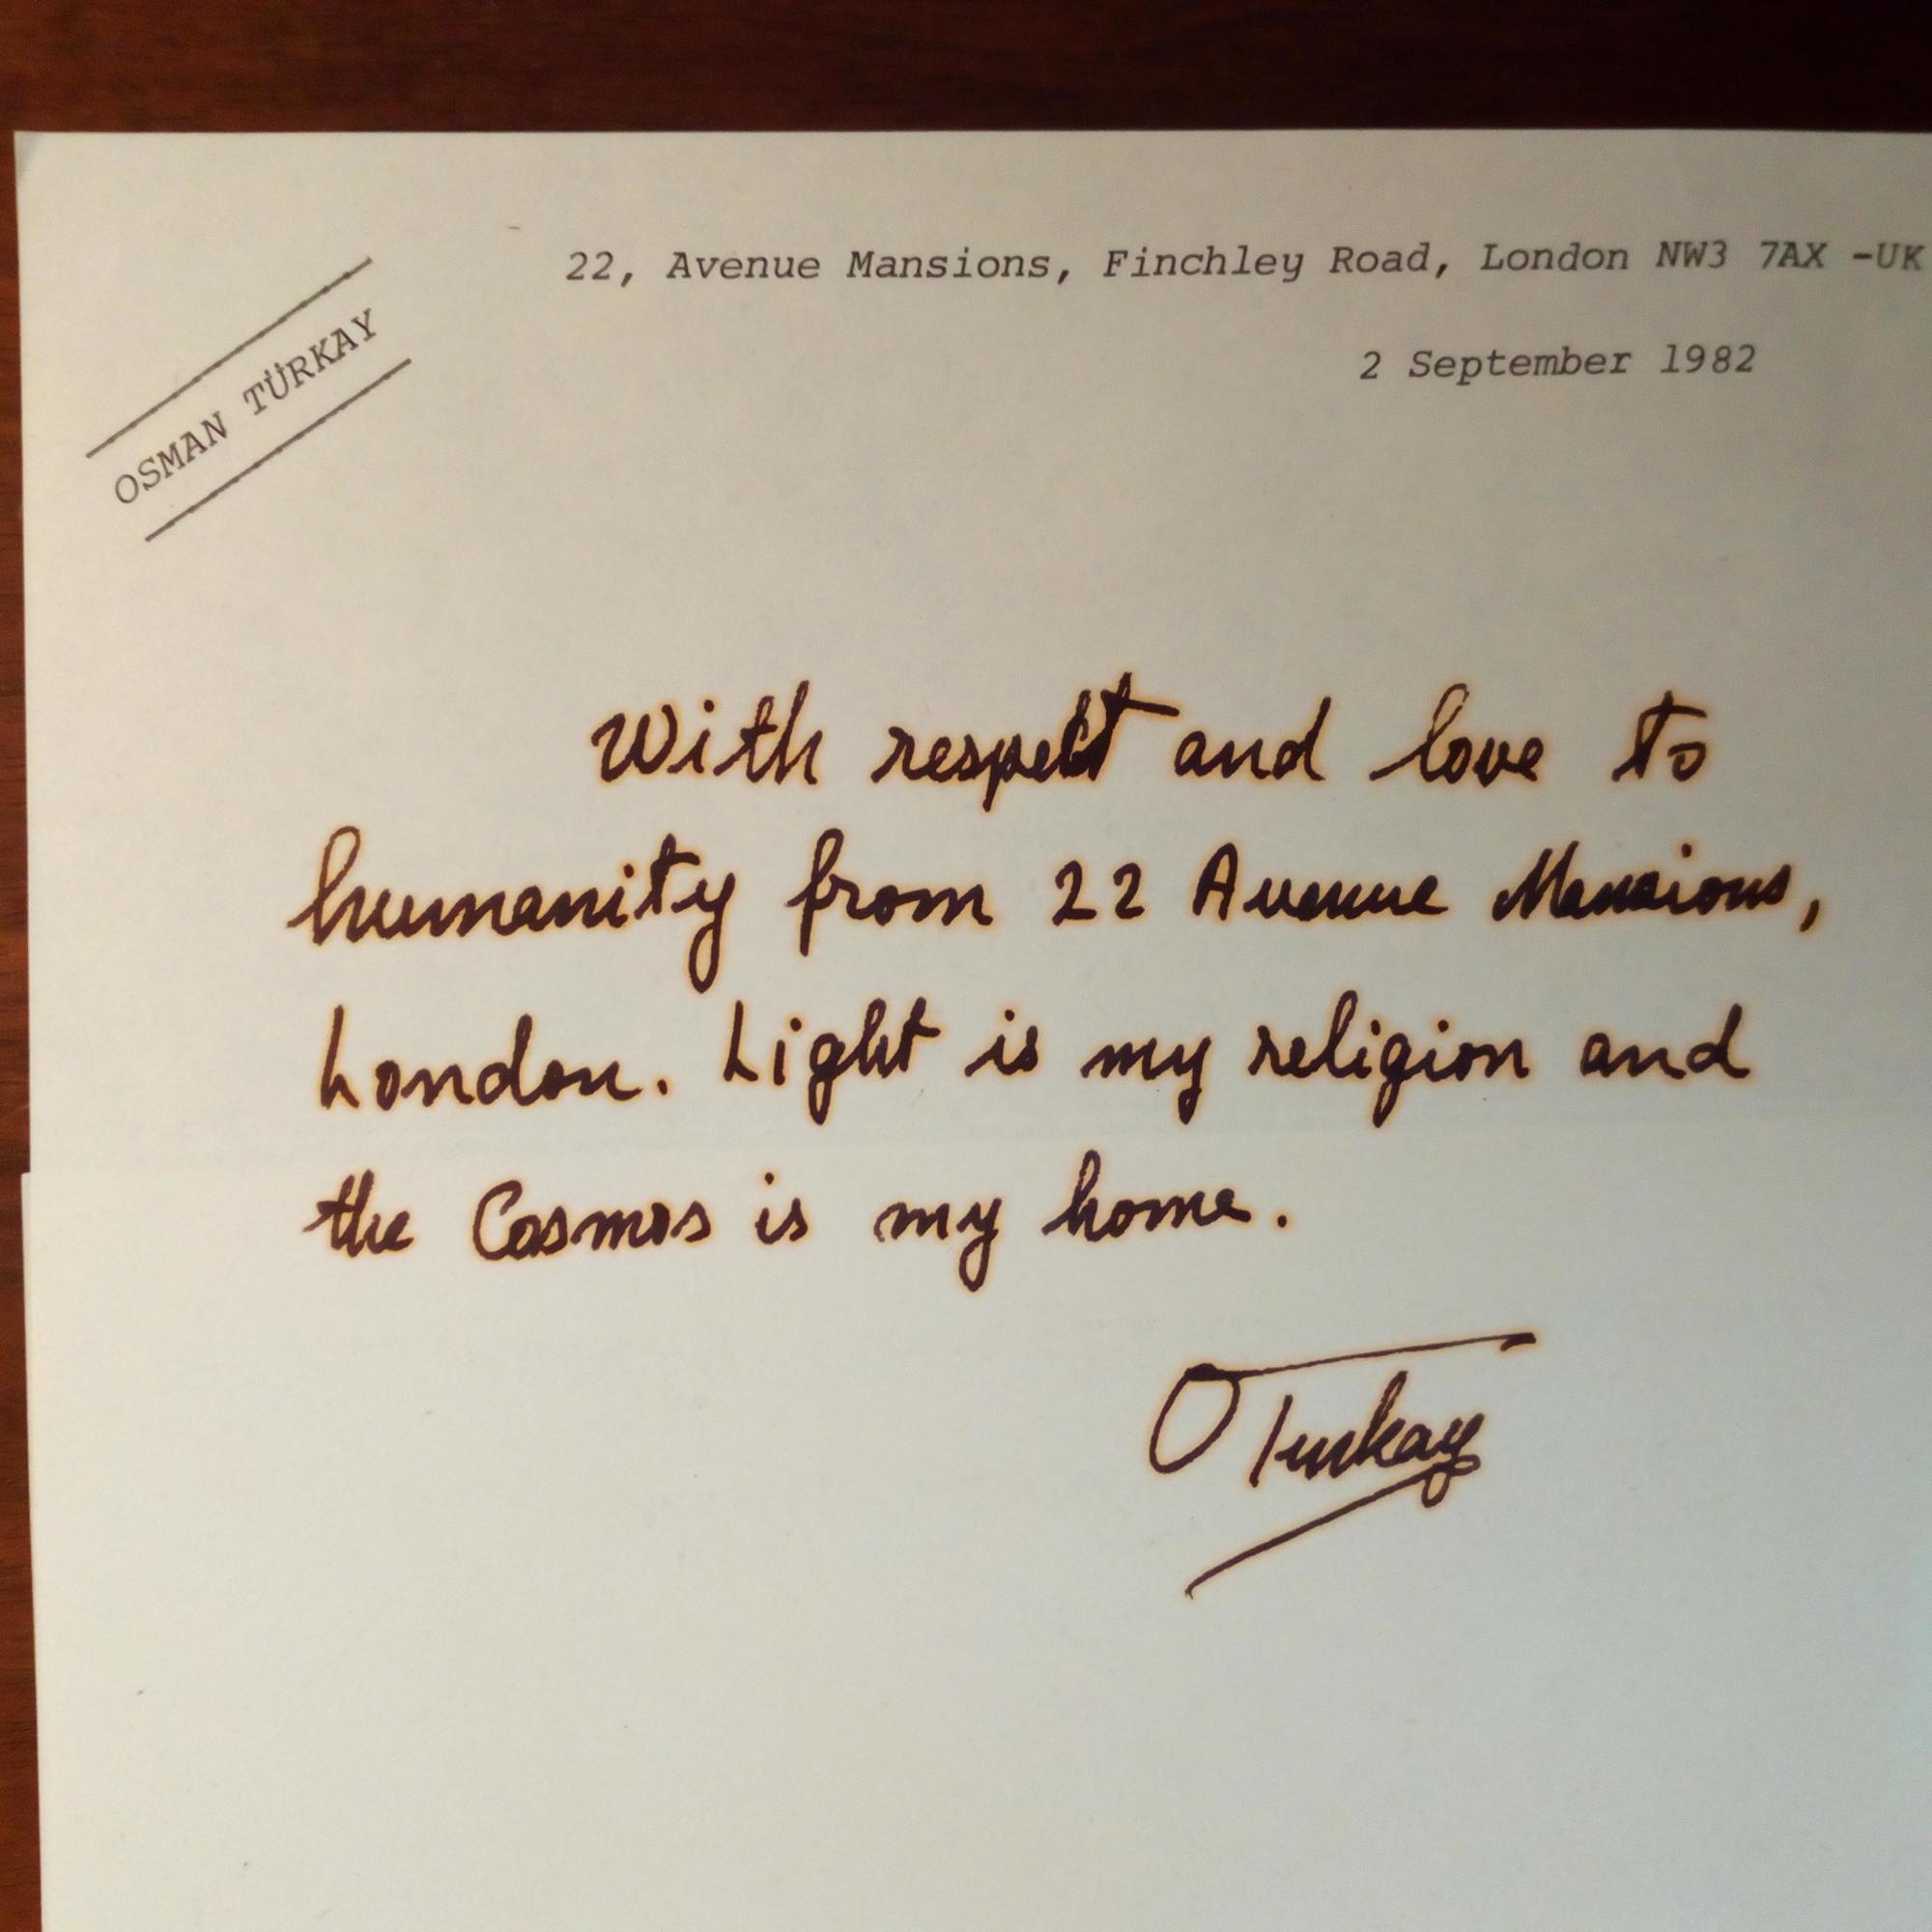 22, Avenue Mansions, Finchley Road, London NW3 7AX -UK
2 September 1982
OSMAN TÜRKAY
With respect and love to
humanity from 22 Avenue Mansions,
London. Light is my religion and
the Cosmos is my home.
O Turkay